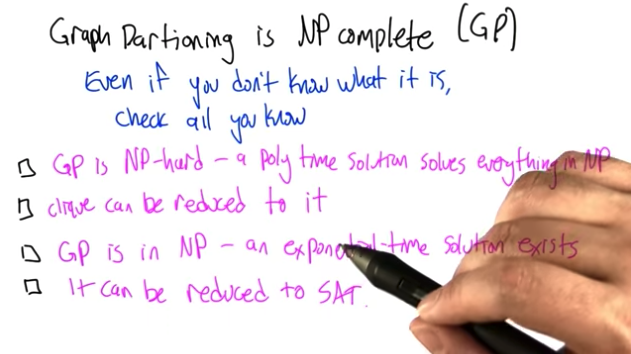 Graph Partioning is NP complete (GP)
Even if you don't know what it is,
check all you know
GP is NP-hard - a poly time solution solves everything in NP
clique can be reduced to it
GP is in NP - an exponential-time solution exists
It can be reduced to SAT.